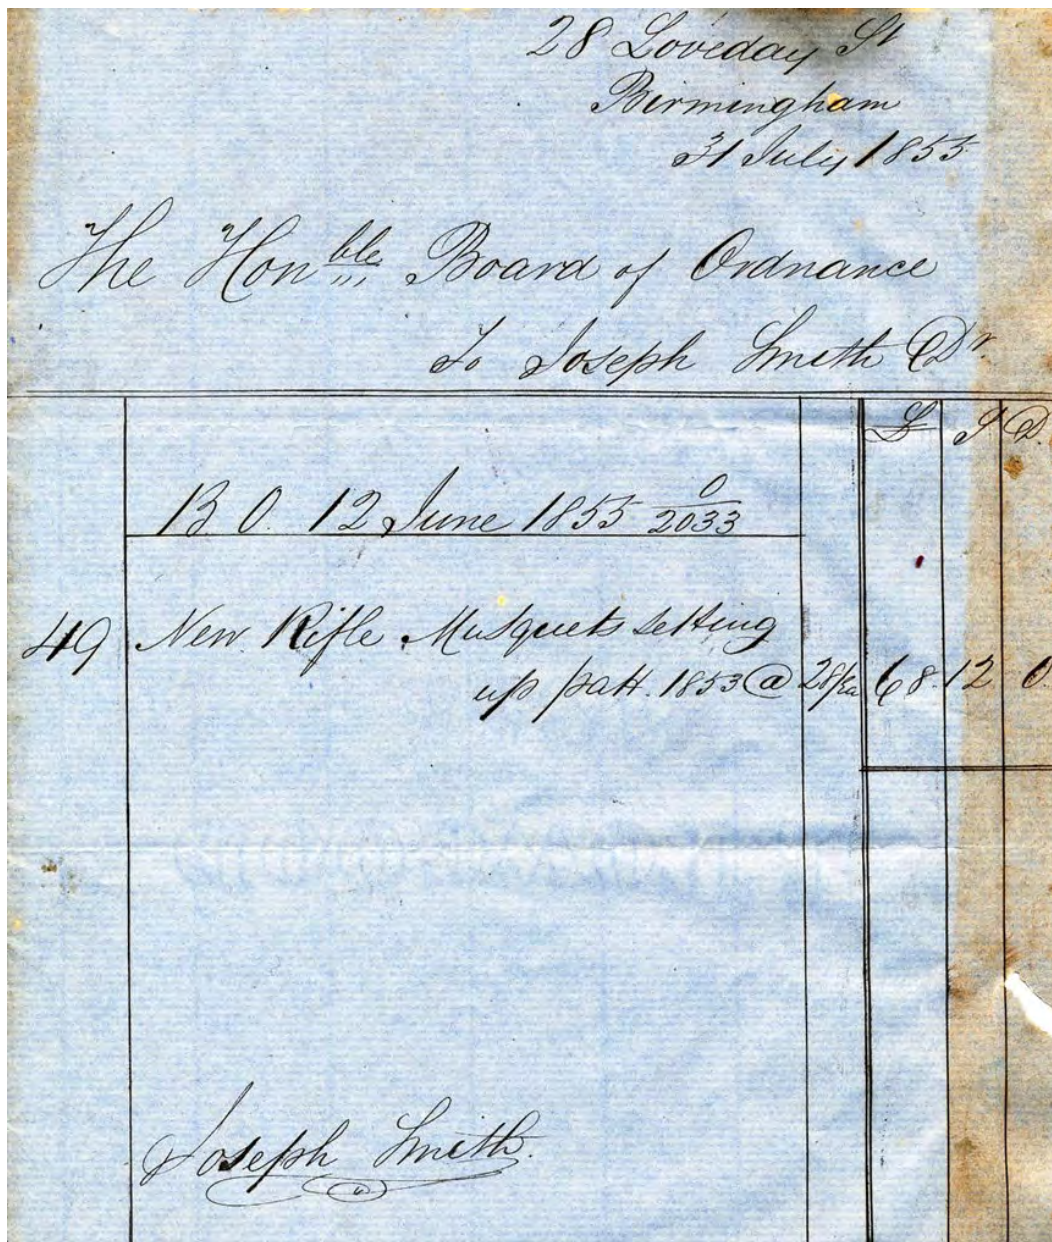 28 Loveday St
Birmingham
31 July 1855
The Honble Board of Ordnance
To Joseph Smith Dr
£ S D
B O. 12 June 1855 0/2033
49 New Rifle Musquets setting
up patt. 1853 @ 28/ea 68. 12 0.
Joseph Smith.